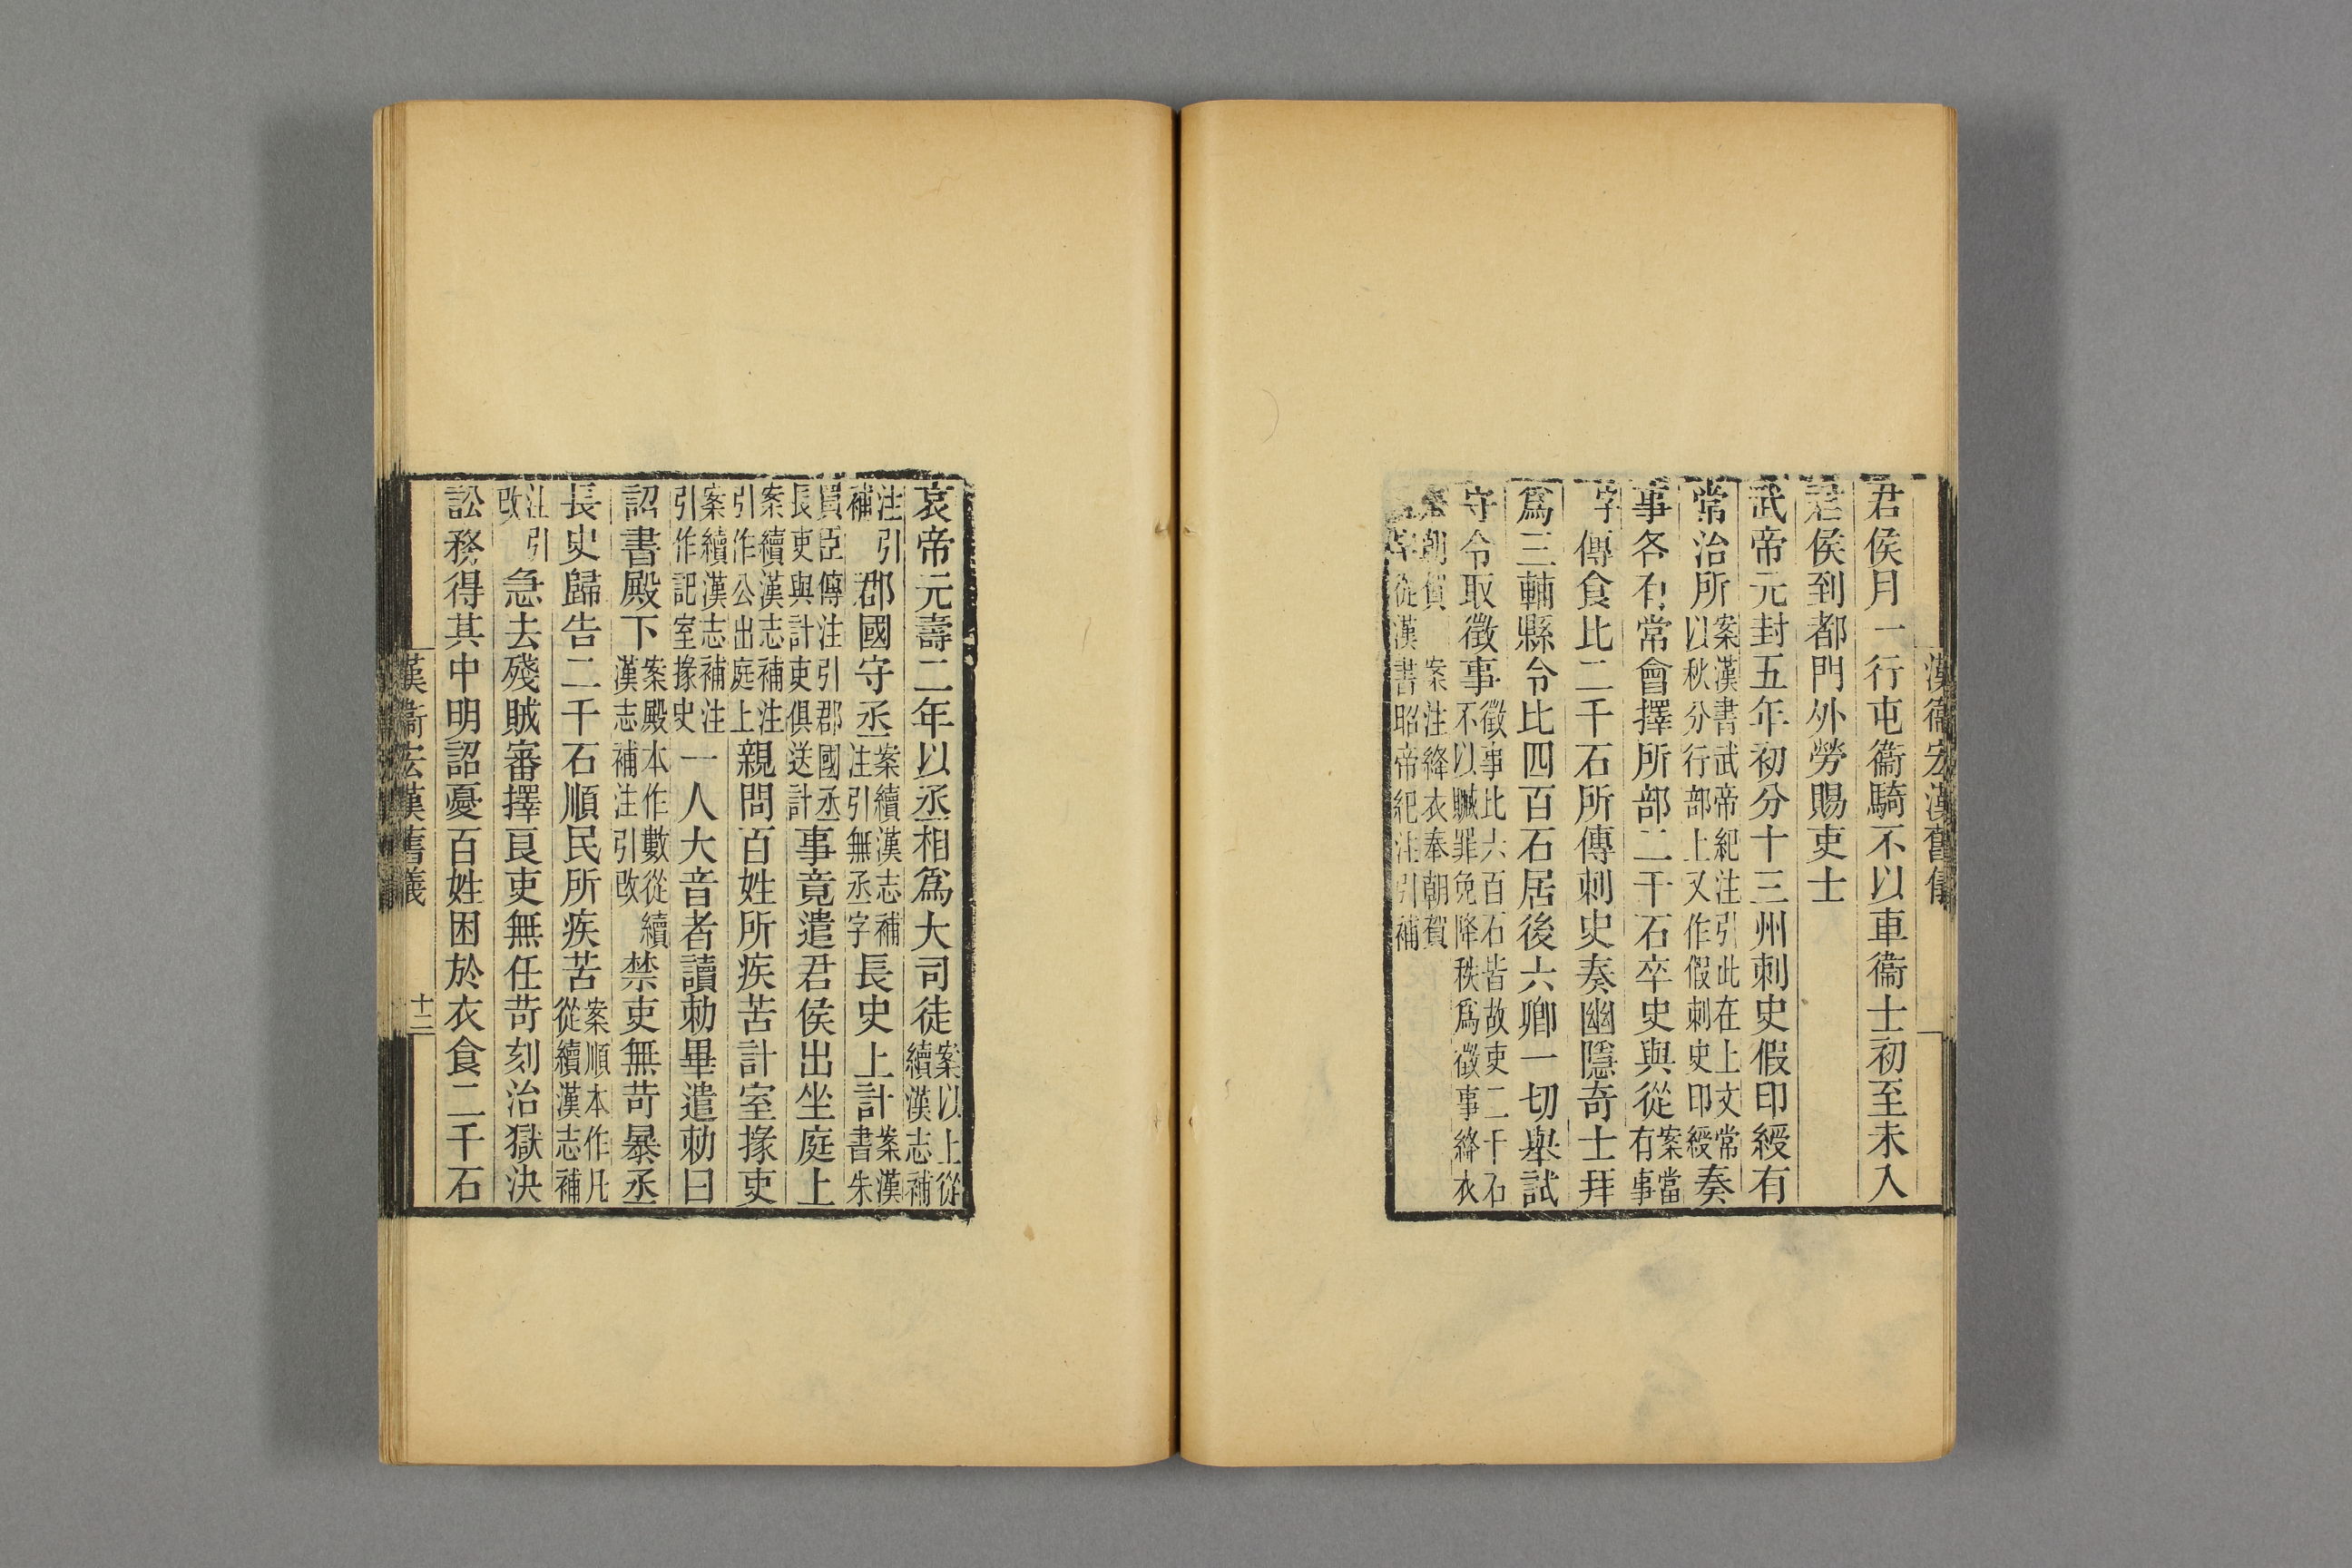 漢衞宏漢舊儀
君侯月一行屯衞騎不以車衞士初至未入
君侯到都門外勞賜吏士
武帝元封五年初分十三州刺史假印綬有
常治所案漢書武帝紀注引此在上文常以秋分行部上又作假刺史印綬奏
事各有常會擇所部二千石卒史與從案當有事
字傳食比二千石所傳刺史奏幽隱奇士拜
爲三輔縣令比四百石居後六卿一切舉試
守令取徵事徵事比六百石皆故吏二千石不以贓罪免降秩爲徵事絳衣
奉朝賀案注絳衣奉朝賀字從漢書昭帝紀注引補
哀帝元壽二年以丞相爲大司徒案以上從續漢志補
注引補郡國守丞案續漢志補注引無丞字長史上計案漢書朱
買臣傳注引郡國丞長吏與計吏俱送計事竟遣君侯出坐庭上
案續漢志補注引作公出庭上親問百姓所疾苦計室掾吏
案續漢志補注引作記室掾史一人大音者讀勑畢遣勑曰
詔書殿下案殿本作數從續漢志補注引改禁吏無苛暴丞
長史歸告二千石順民所疾苦案順本作凡從續漢志補
注引改急去殘賊審擇良吏無任苛刻治獄決
訟務得其中明詔憂百姓困於衣食二千石
漢衞宏漢舊儀
十二